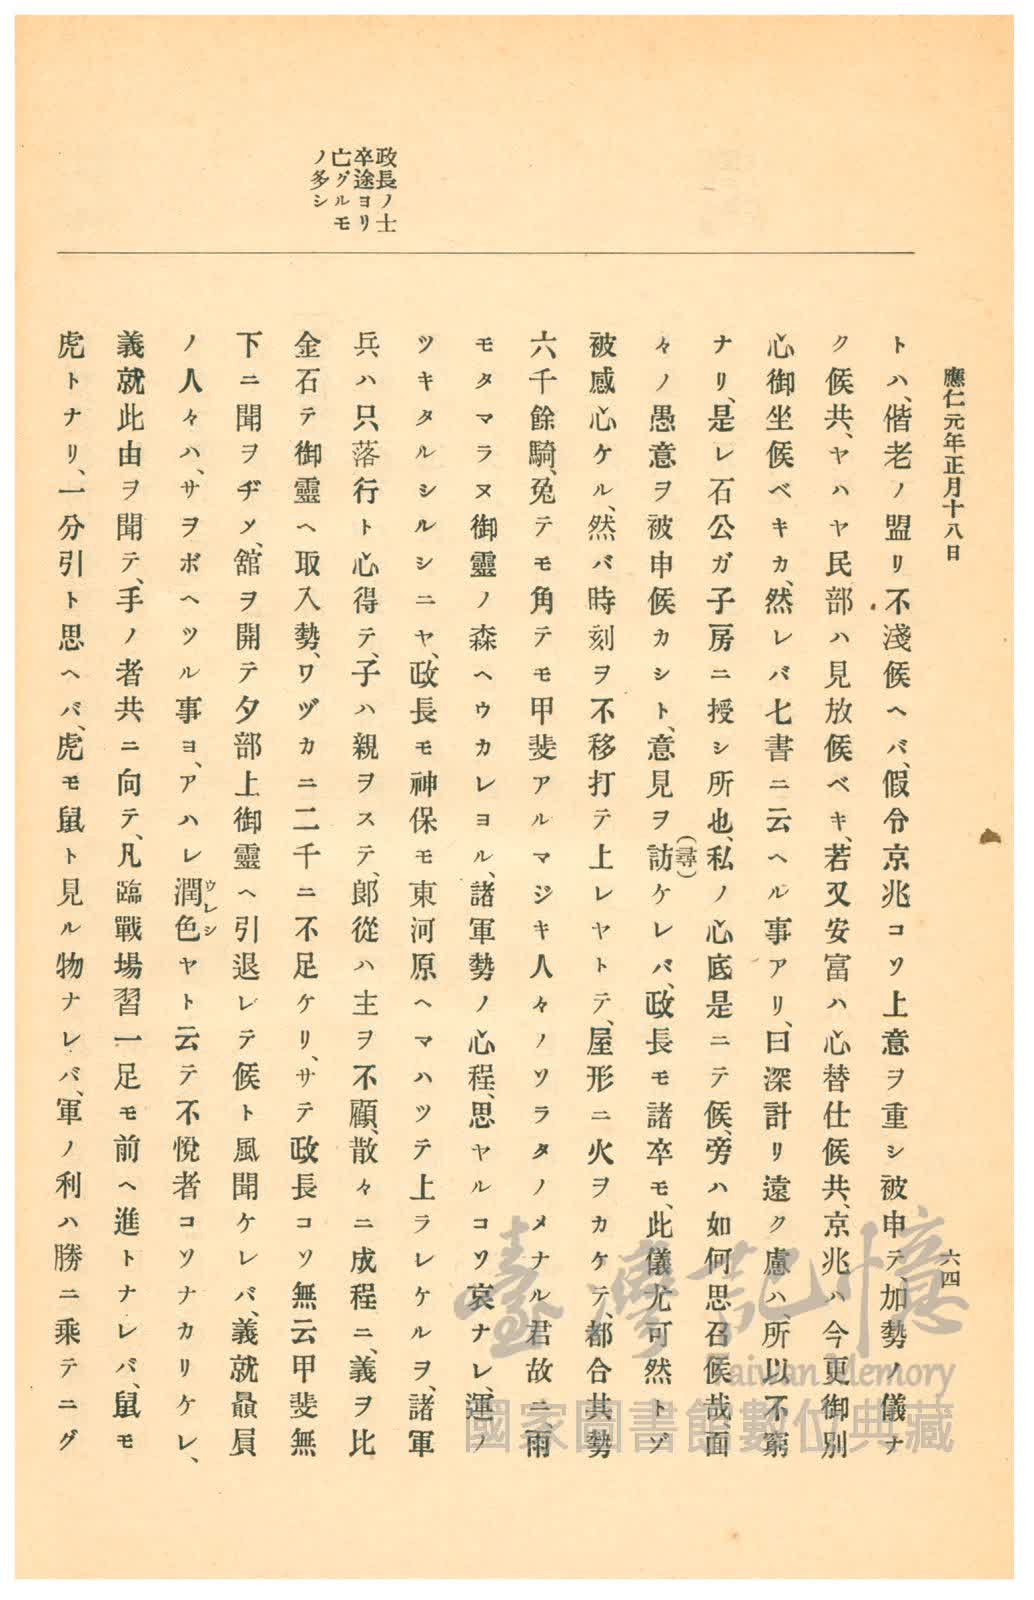 應仁元年正月十八日
六四
政長ノ士
卒途ヨリ
亡グルモ
ノ多シ
トハ、偕老ノ盟リ不淺候ヘバ、假令京兆コソ上意ヲ重シ被申テ、加勢ノ儀ナ
ク候共、ヤハヤ民部ハ見放候ベキ、若又安富ハ心替仕候共、京兆ハ今更御別
心御坐候ベキカ、然レバ七書ニ云ヘル事アリ、曰深計リ遠ク慮ハ、所以不窮
ナリ、是レ石公ガ子房ニ授シ所也、私ノ心底是ニテ候、旁ハ如何思召候哉、面
々ノ愚意ヲ被申候カシト、意見ヲ訪(尋)ケレバ、政長モ諸卒モ、此儀尤可然トゾ
被感心ケル、然バ時刻ヲ不移打テ上レヤトテ、屋形ニ火ヲカケテ、都合其勢
六千餘騎、兔テモ角テモ甲斐アルマジキ人々ノソラタノメナル君故ニ、雨
モタマラヌ御靈ノ森ヘウカレヨル、諸軍勢ノ心程、思ヤルコソ哀ナレ、運ノ
ツキタルシルシニヤ、政長モ神保モ東河原ヘマハツテ上ラレケルヲ、諸軍
兵ハ只落行ト心得テ、子ハ親ヲステ、郎從ハ主ヲ不顧、散々ニ成程ニ、義ヲ比
金石テ御靈ヘ取入勢、ワヅカニ二千ニ不足ケリ、サテ政長コソ無云甲斐無
下ニ聞ヲヂメ、舘ヲ開テ夕部上御靈ヘ引退レテ候ト風聞ケレバ、義就贔屓
ノ人々ハ、サヲボヘツル事ヨ、アハレ潤色ウレシヤト云テ不悅者コソナカリケレ、
義就此由ヲ聞テ、手ノ者共ニ向テ、凡臨戰場習一足モ前ヘ進トナレバ、鼠モ
虎トナリ、一分引ト思ヘバ、虎モ鼠ト見ル物ナレバ、軍ノ利ハ勝ニ乘テニグ
臺灣記憶
Taiwan Memory
國家圖書館數位典藏